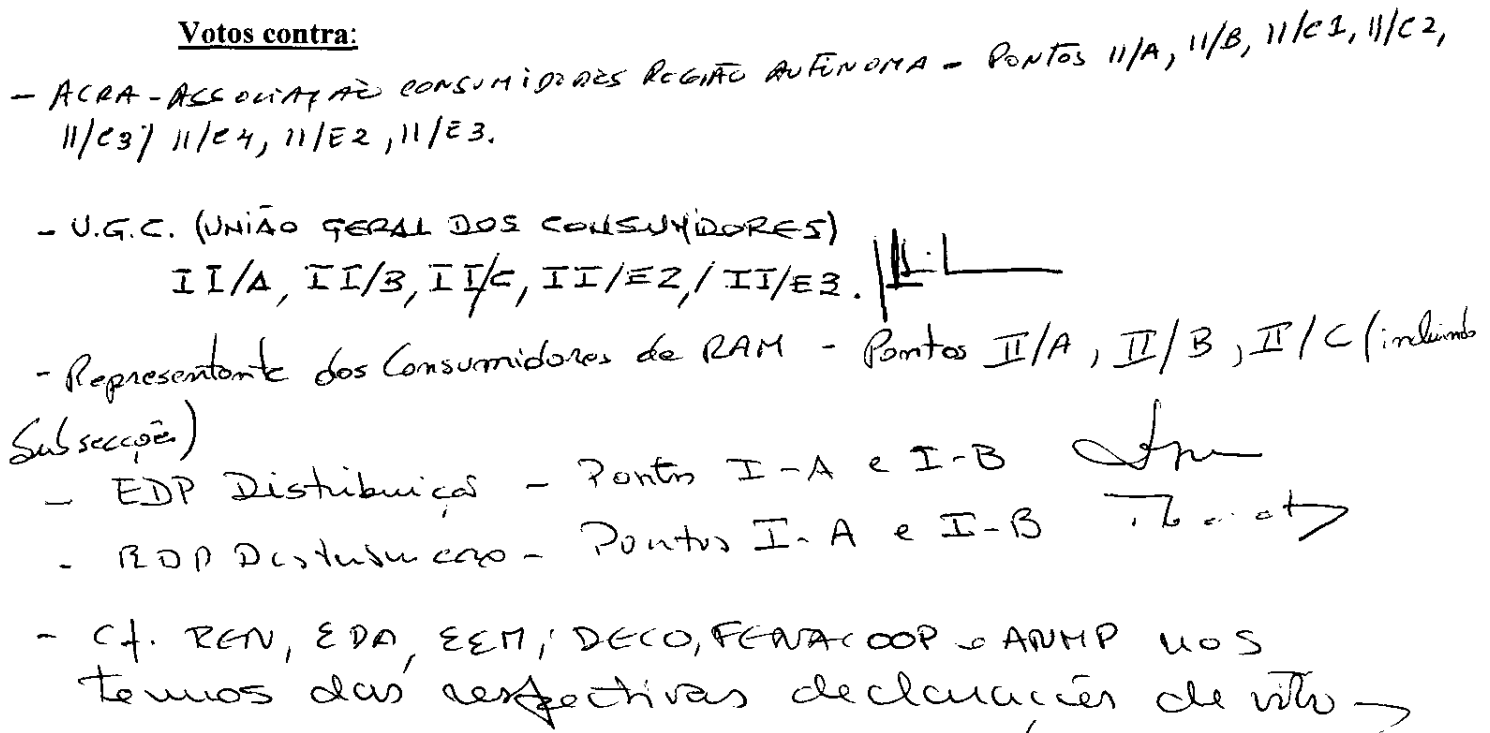 Votos contra:
- ACRA - ASSOCIAÇÃO CONSUMIDORES REGIÃO AUTÓNOMA - PONTOS II/A, II/B, II/C1, II/C2,
II/C3, II/C4, II/E2, II/E3.
- U.G.C. (UNIÃO GERAL DOS CONSUMIDORES)
II/A, II/B, II/C, II/E2, II/E3.
- Representante dos Consumidores da RAM - Pontos II/A, II/B, II/C (incluindo
Subsecções)
- EDP Distribuição - Pontos I-A e I-B
- EDP Distribuição - Pontos I-A e I-B
- Cf. REN, EDA, EEM, DECO, FENACOOP e ANMP nos
termos das respectivas declarações de voto